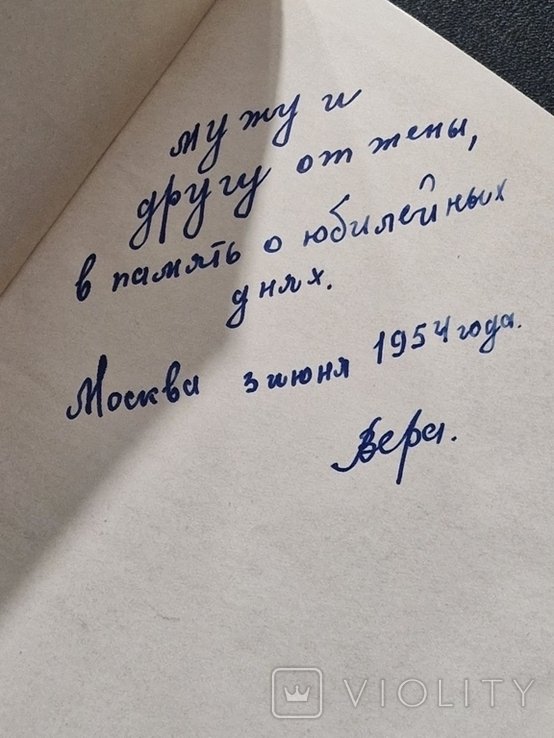 мужу и
другу от жены,
в память о юбилейных
днях.
Москва 3 июня 1954 года.
Вера.
VIOLITY